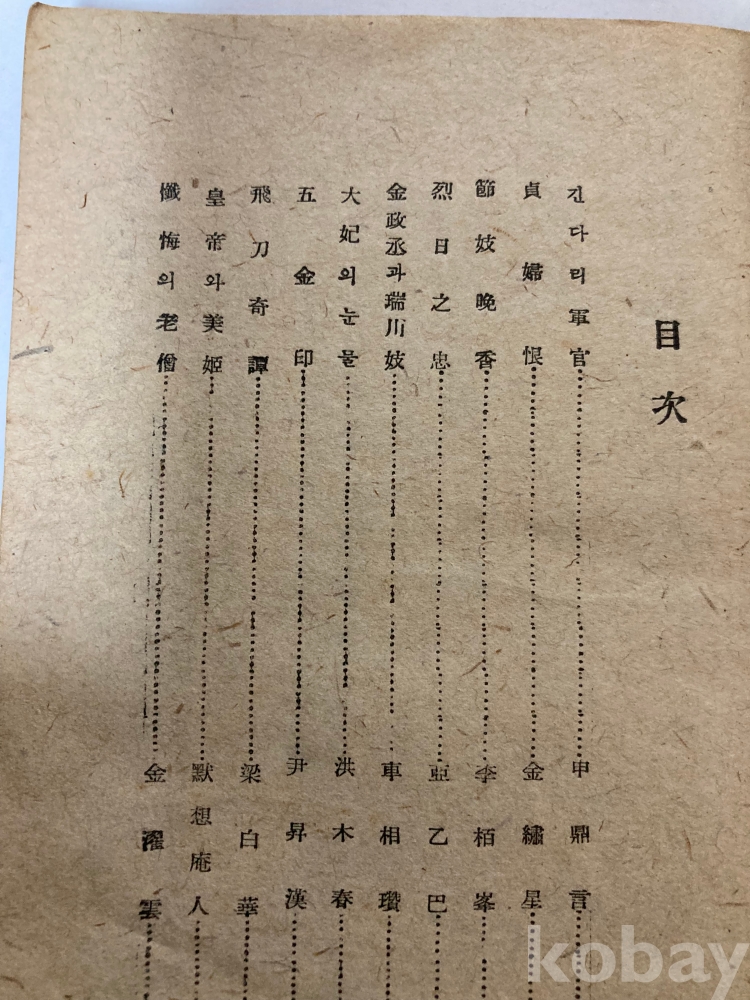 目次
긴다리軍官 申鼎言
貞婦恨 金繡星
節妓晩香 李栢峯
烈日之忠 亞乙巴
金政丞과瑞川妓 車相瓚
大妃의눈물 洪木春
五金印 尹昇漢
飛刀奇譚 梁白華
皇帝와美姬 默想庵人
懺悔의老僧 金濯雲
kobay